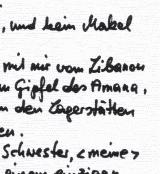 , und kein Makel
mit mir vom Libanon
m Gipfel des Amana,
n den Lagerstätten
en.
Schwester, <meine>